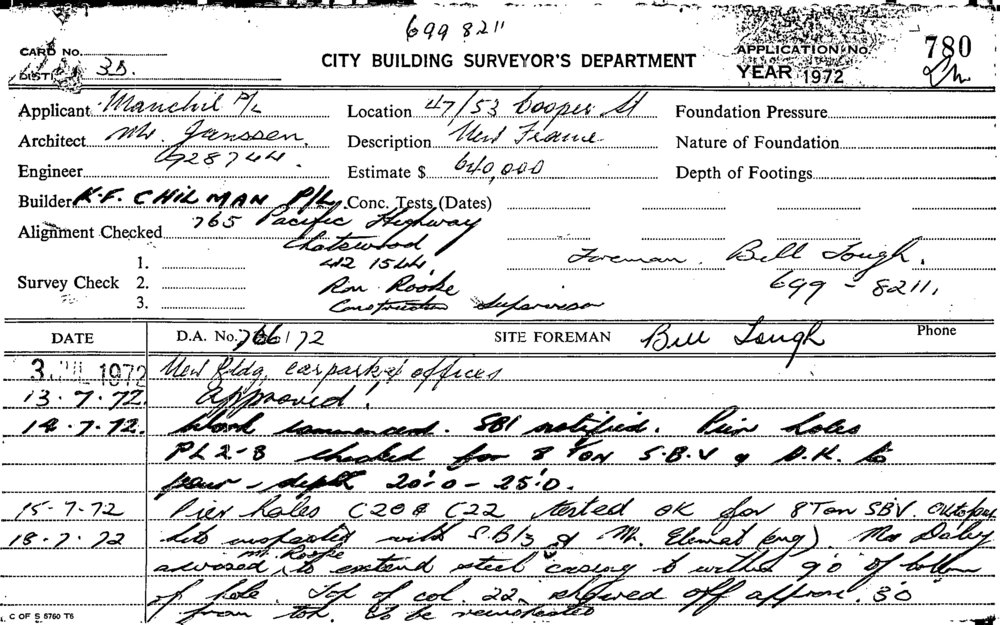 699 8211
CARD No.
DISTI 3D.
CITY BUILDING SURVEYOR'S DEPARTMENT
APPLICATION No. 780
YEAR 1972
Applicant Manchil P/L
Location 47/53 Cooper St
Foundation Pressure
Architect Mr. Janssen
Description New Frame
Nature of Foundation
Engineer 928744.
Estimate $ 640,000
Depth of Footings
Builder K.F. CHILMAN P/L
Conc. Tests (Dates)
Alignment Checked 765 Pacific Highway
Chatswood
412 1544.
Foreman. Bill Tough.
Survey Check 1.
2. Ron Rooke
699 - 8211.
3. Construction Supervisor
DATE D.A. No. 766/72 SITE FOREMAN Bill Tough Phone
3 JUL 1972 New Bldg, carpark & offices
13.7.72. Approved!
14.7.72. Work commenced. SBI notified. Pier holes
PL 2-B checked for 8 TON S.B.V & O.K. to
pour - depth 20'.0 - 25'.0.
15-7-72 Pier holes C20 & C22 tested OK for 8 Ton SBV.
18-7-72 Site inspected with S.B/3 & Mr. (eng). Mr Daley
Mr. Rooke
advised to extend steel casing to within 9'0" of bottom
of hole. Top of col. 22. off approx. 3'0
from top. To be reinspected
C OF S 5760 T5